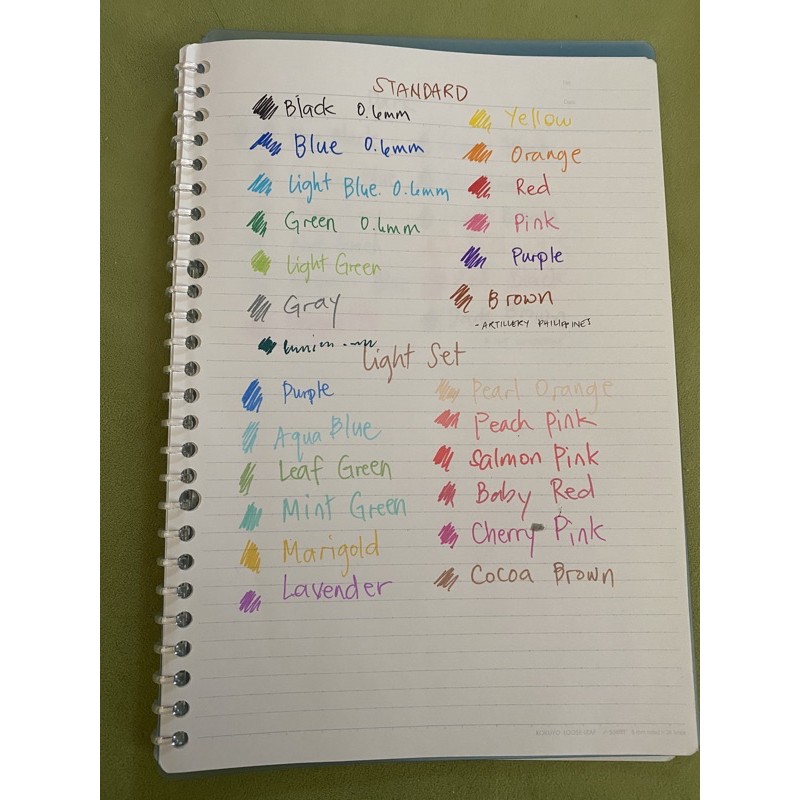 STANDARD
Black 0.6mm
Blue 0.6mm
Light Blue. 0.6mm
Green 0.6mm
Light Green
Gray
Yellow
Orange
Red
Pink
Purple
Brown
-ARTILLERY PHILIPPINES
Light Set
Purple
Aqua Blue
Leaf Green
Mint Green
Marigold
Lavender
Pearl Orange
Peach Pink
Salmon Pink
Baby Red
Cherry Pink
Cocoa Brown